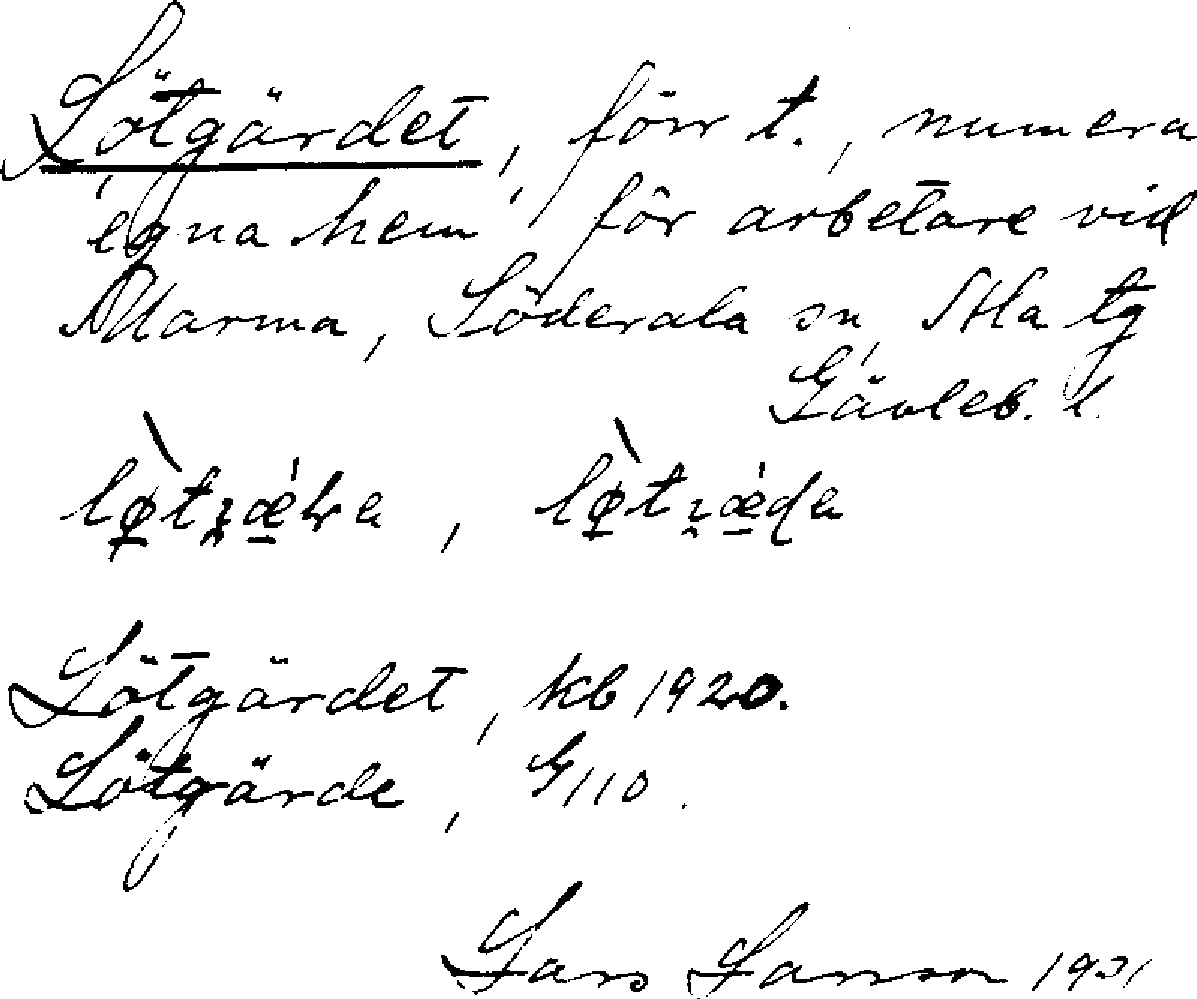 Lötgärdet, förr t., numera
'egna hem' för arbetare vid
Marma, Söderala sn, Ala tg
Gävleb. l.
Lötgärdet, kb 1920.
Lötgärde, G110.
Lars Larson